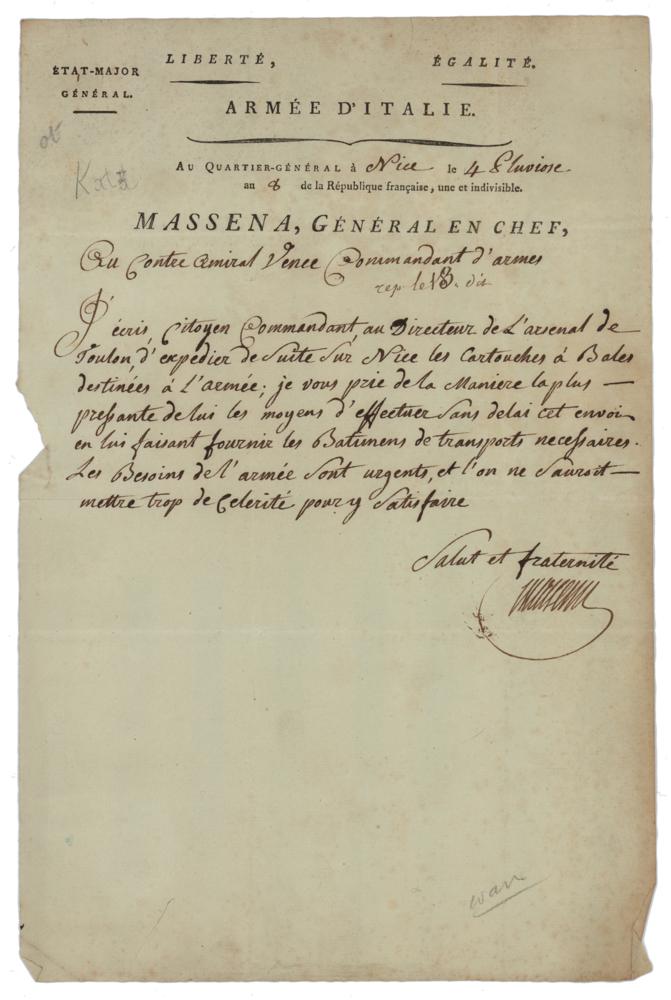 LIBERTÉ, ÉGALITÉ.
ÉTAT-MAJOR
GÉNÉRAL.
ARMÉE D'ITALIE.
Au Quartier-général à Nice le 4 Pluviose
an 8 de la République française, une et indivisible.
MASSENA, Général en chef,
Au Contre Amiral Vence Commandant d'armes
rep. le 18. dit
J'écris, Citoyen Commandant, au Directeur de L'arsenal de
Toulon, d'expedier de Suite Sur Nice les Cartouches à Bales
destinées à L'armée; je vous prie de la Maniere la plus —
pressante de lui les moyens d'effectuer Sans delai cet envoi
en lui faisant fournir les Batimens de transports necessaires.
Les Besoins de l'armée Sont urgents, et l'on ne Sauroit —
mettre trop de Celerité pour y Satisfaire
Salut et fraternité
Massena